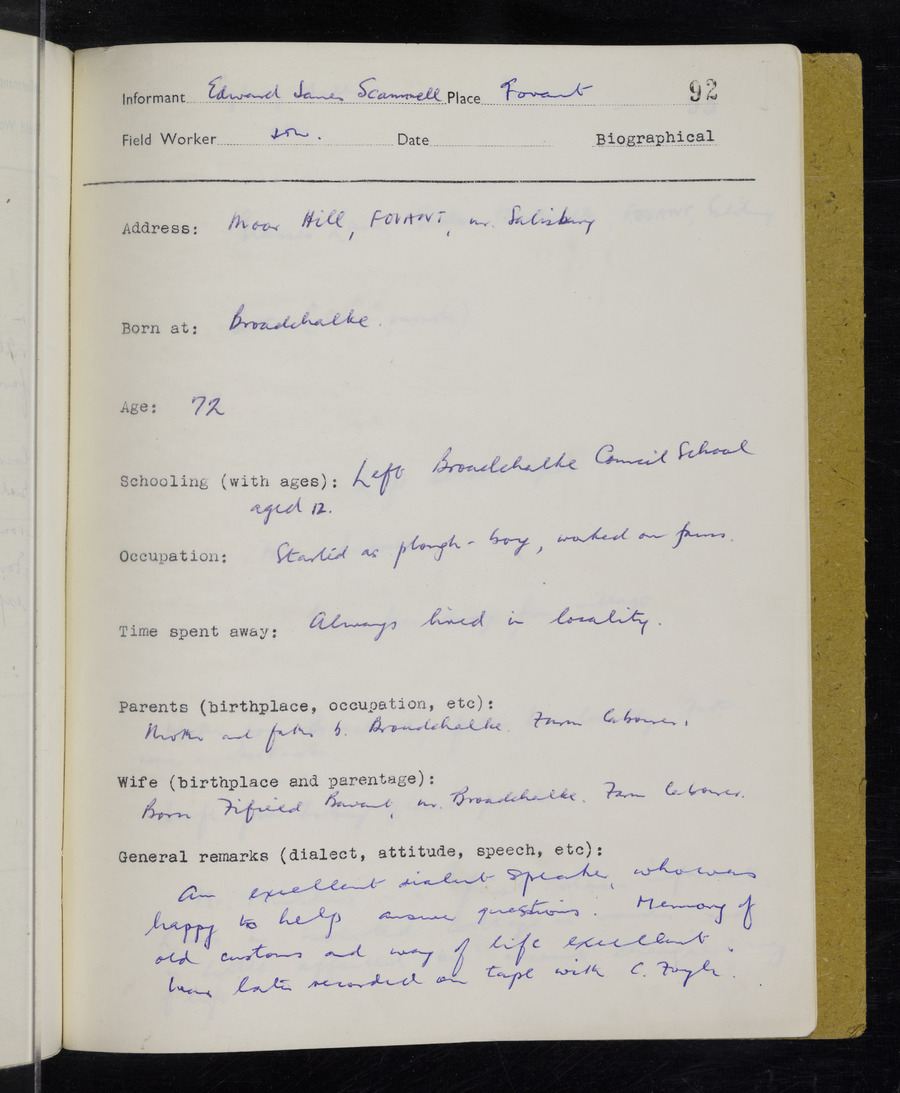 Informant Edward James Scammell Place Fovant 92
Field Worker Date Biographical
Address: Moor Hill, FOVANT, nr. Salisbury
Born at: Broadchalke.
Age: 72
Schooling (with ages): Left Broadchalke Council School
aged 12.
Occupation: Started as plough-boy, worked on farms.
Time spent away: Always lived in locality.
Parents (birthplace, occupation, etc):
Mother and father b. Broadchalke. Farm labourer.
Wife (birthplace and parentage):
Born Fifield Bavant, nr. Broadchalke. Farm labourer.
General remarks (dialect, attitude, speech, etc):
An excellent dialect speaker, who was
happy to help answer questions. Memory of
old customs and way of life excellent.
Was later recorded on tape with C.